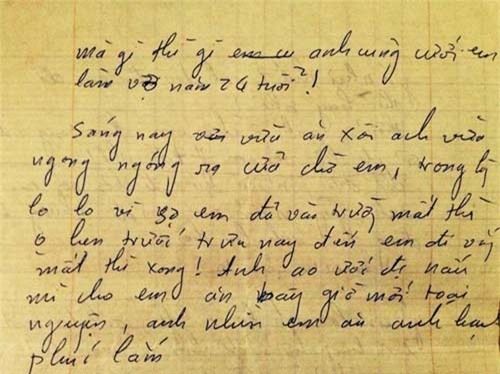 mà gì thì gì anh cũng cưới em
làm vợ năm 24 tuổi!
Sáng nay vừa ăn xôi anh vừa
ngong ngóng ra cửa chờ em, trong
lo lo vì sợ em đã vào trường mất thì
trưa nay đến em đi
mất thì xong! Anh ao ước nấu
mì cho em ăn bây giờ mới toại
nguyện, anh nhìn em ăn anh hạnh
phúc lắm